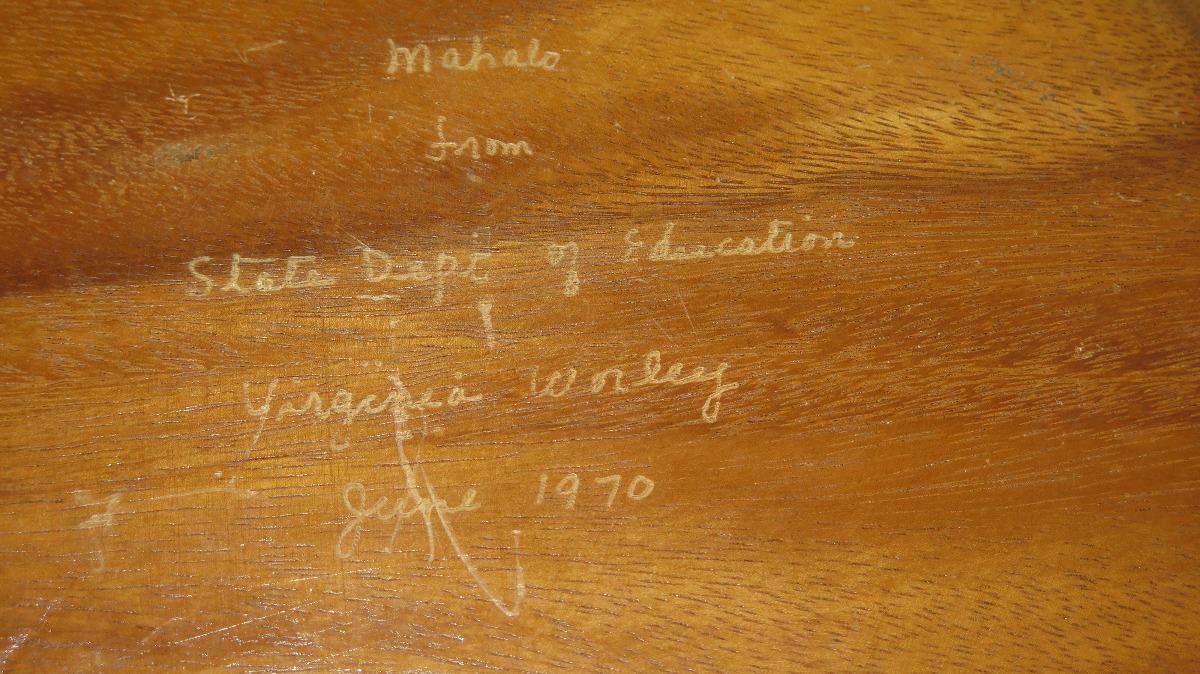 Mahalo
from
State Dept of Education
Virginia Worley
June 1970